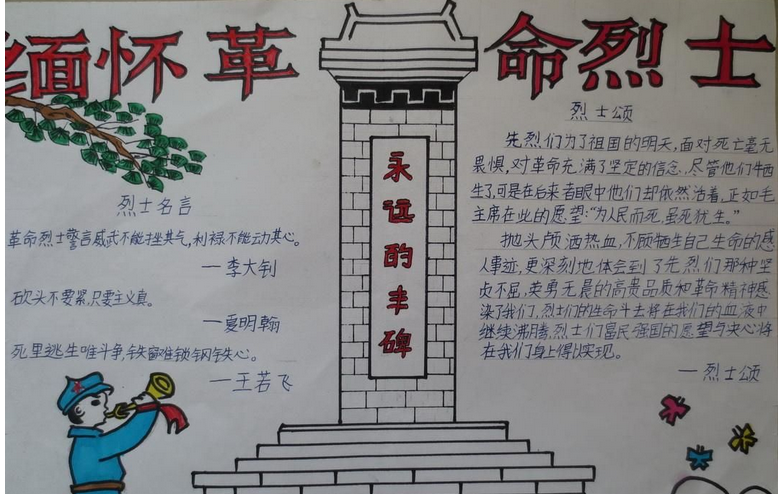 缅怀革命烈士
烈士名言
革命烈士警言威武不能挫其气,利禄不能动其心。
—李大钊
砍头不要紧,只要主义真。
—夏明翰
死里逃生唯斗争,铁窗难锁钢铁心。
—王若飞
永远的丰碑
烈士颂
先烈们为了祖国的明天,面对死亡毫无
畏惧,对革命充满了坚定的信念,尽管他们牺
生了,可是在后来者眼中他们却依然活着,正如毛
主席在此的愿望:“为人民而死,虽死犹生。”
抛头颅洒热血,不顾牺生自己生命的感
人事迹,更深刻地体会到了先烈们那种坚
贞不屈,英勇无畏的高贵品质和革命精神感
染了我们,烈士们的生命斗去将在我们的血液中
继续沸腾,烈士们富民强国的愿望与决心将
在我们身上得以实现。
—烈士颂